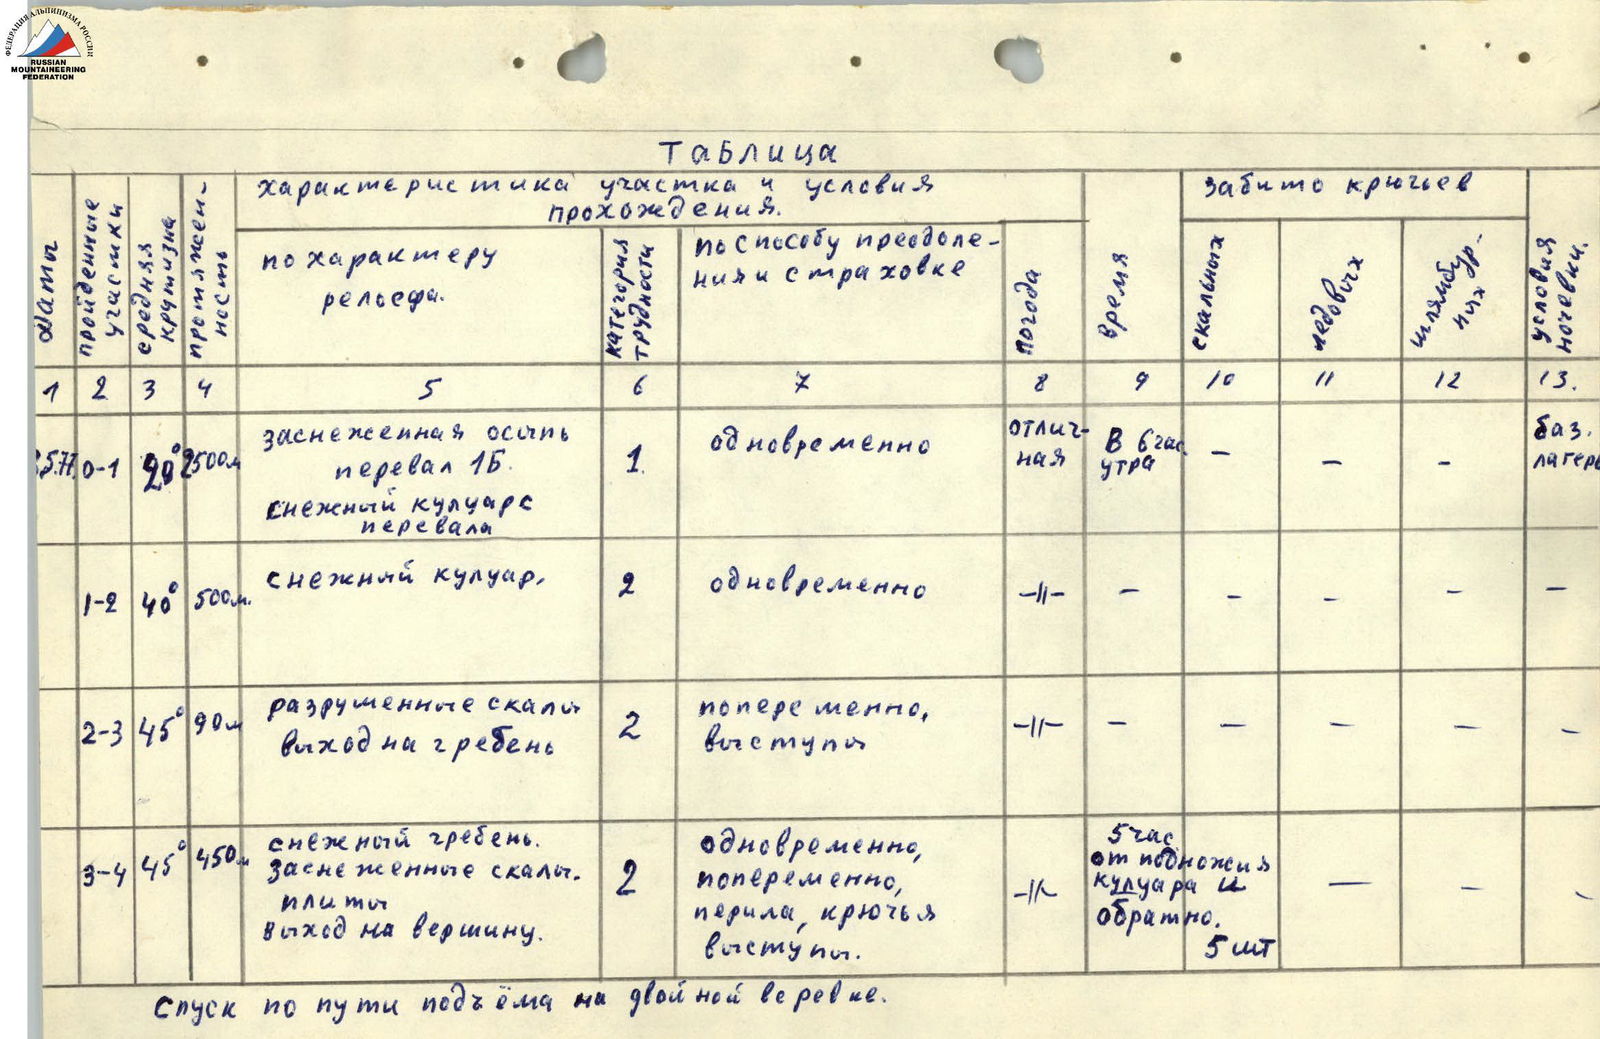 ФЕДЕРАЦИЯ АЛЬПИНИЗМА РОССИИ
RUSSIAN
MOUNTAINEERING
FEDERATION
Таблица
Даты
пройденные
участки
средняя
крутизна
протяжен-
ность
характеристика участка и условия
прохождения.
по характеру
рельефа.
категория
трудности
по способу преодоле-
ния и страховке
погода
время
забито крючьев
скальных
ледовых
шлямбур-
ных
условия
ночевки.
1 2 3 4 5 6 7 8 9 10 11 12 13.
5.77. 0-1 20° 2500м
заснеженная осыпь
перевал 1Б.
снежный кулуаре
перевала
1.
одновременно
отлич-
ная
В 6 час.
утра
– – –
баз.
лагерь
1-2 40° 500м. снежный кулуар. 2 одновременно -||- – – – – –
2-3 45° 90м
разрушенные скалы
выход на гребень
2
попеременно,
выступы
-||- – – – – –
3-4 45° 450м
снежный гребень.
заснеженные скалы.
плиты
выход на вершину.
2
одновременно,
попеременно,
перила, крючья
выступы.
-||-
5 час
от подножия
кулуара и
обратно.
5 шт
– – –
Спуск по пути подъёма на двойной веревке.